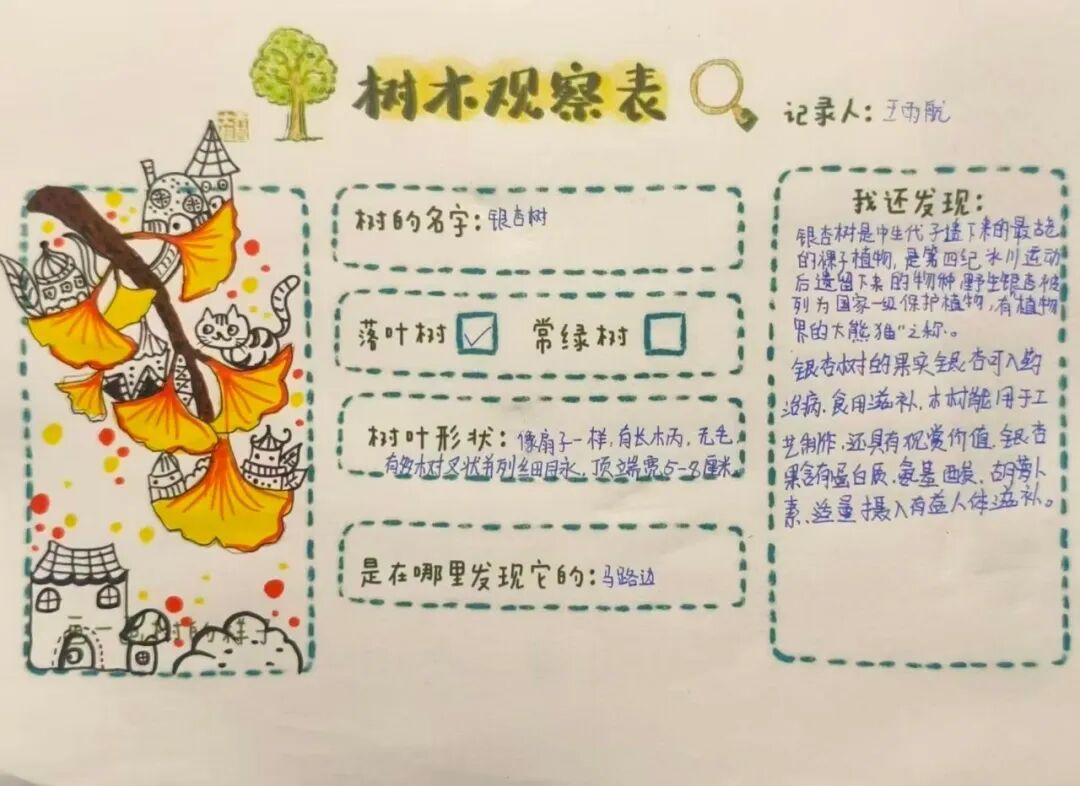 树木观察表
记录人：王雨航
树的名字：银杏树
落叶树 常绿树
树叶形状：像扇子一样，有长木丙，无毛，
有多木对叉状并列细目永，顶端宽5-8厘米
是在哪里发现它的：马路边
画一画树的样子
我还发现：
银杏树是中生代孑遗下来的最古老
的裸子植物，是第四纪冰川运动
后遗留下来的物种，野生银杏被
列为国家一级保护植物，有“植物
界的大熊猫”之称。
银杏树的果实银杏可入药
治病、食用滋补，木材能用于工
艺制作，还具有观赏价值，银杏
果含有蛋白质、氨基酉酸、胡萝卜
素，适量摄入有益人体滋补。